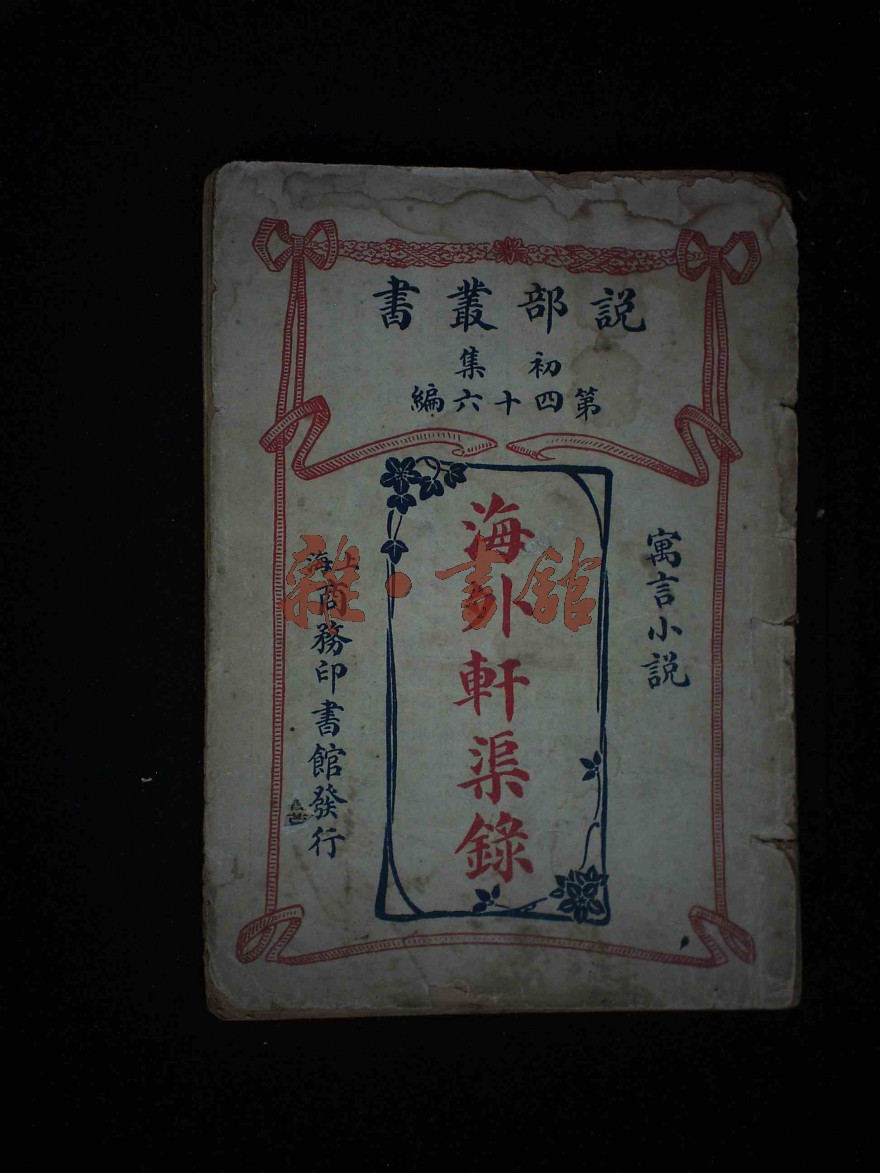 說部叢書
初集
第四十六編
寓言小說
海外軒渠錄
上海商務印書館發行
雜·書館